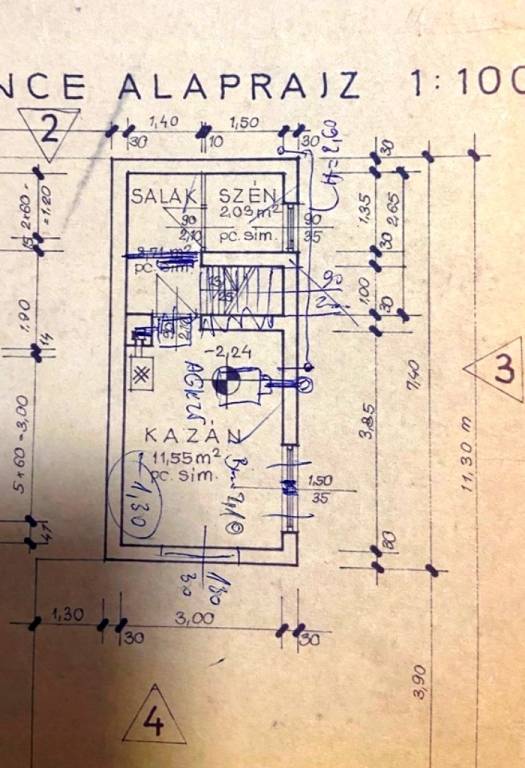 NCE ALAPRAJZ 1:100
2
1,40
1,50
30
10
30
H=2,60
30
SALAK
SZÉN
2,09 m²
pc. sim.
90
2,10
90
35
pc. sim.
1,35
2,65
30
1,00
30
90
2×60=1.20
15
1.90
14
5×60=3,00
-2,24
KAZÁN
11,55 m²
pc. sim.
1,30
1,50
35
3,85
7,40
11,30 m
3
30
1,30
30
3,00
30
3,90
4